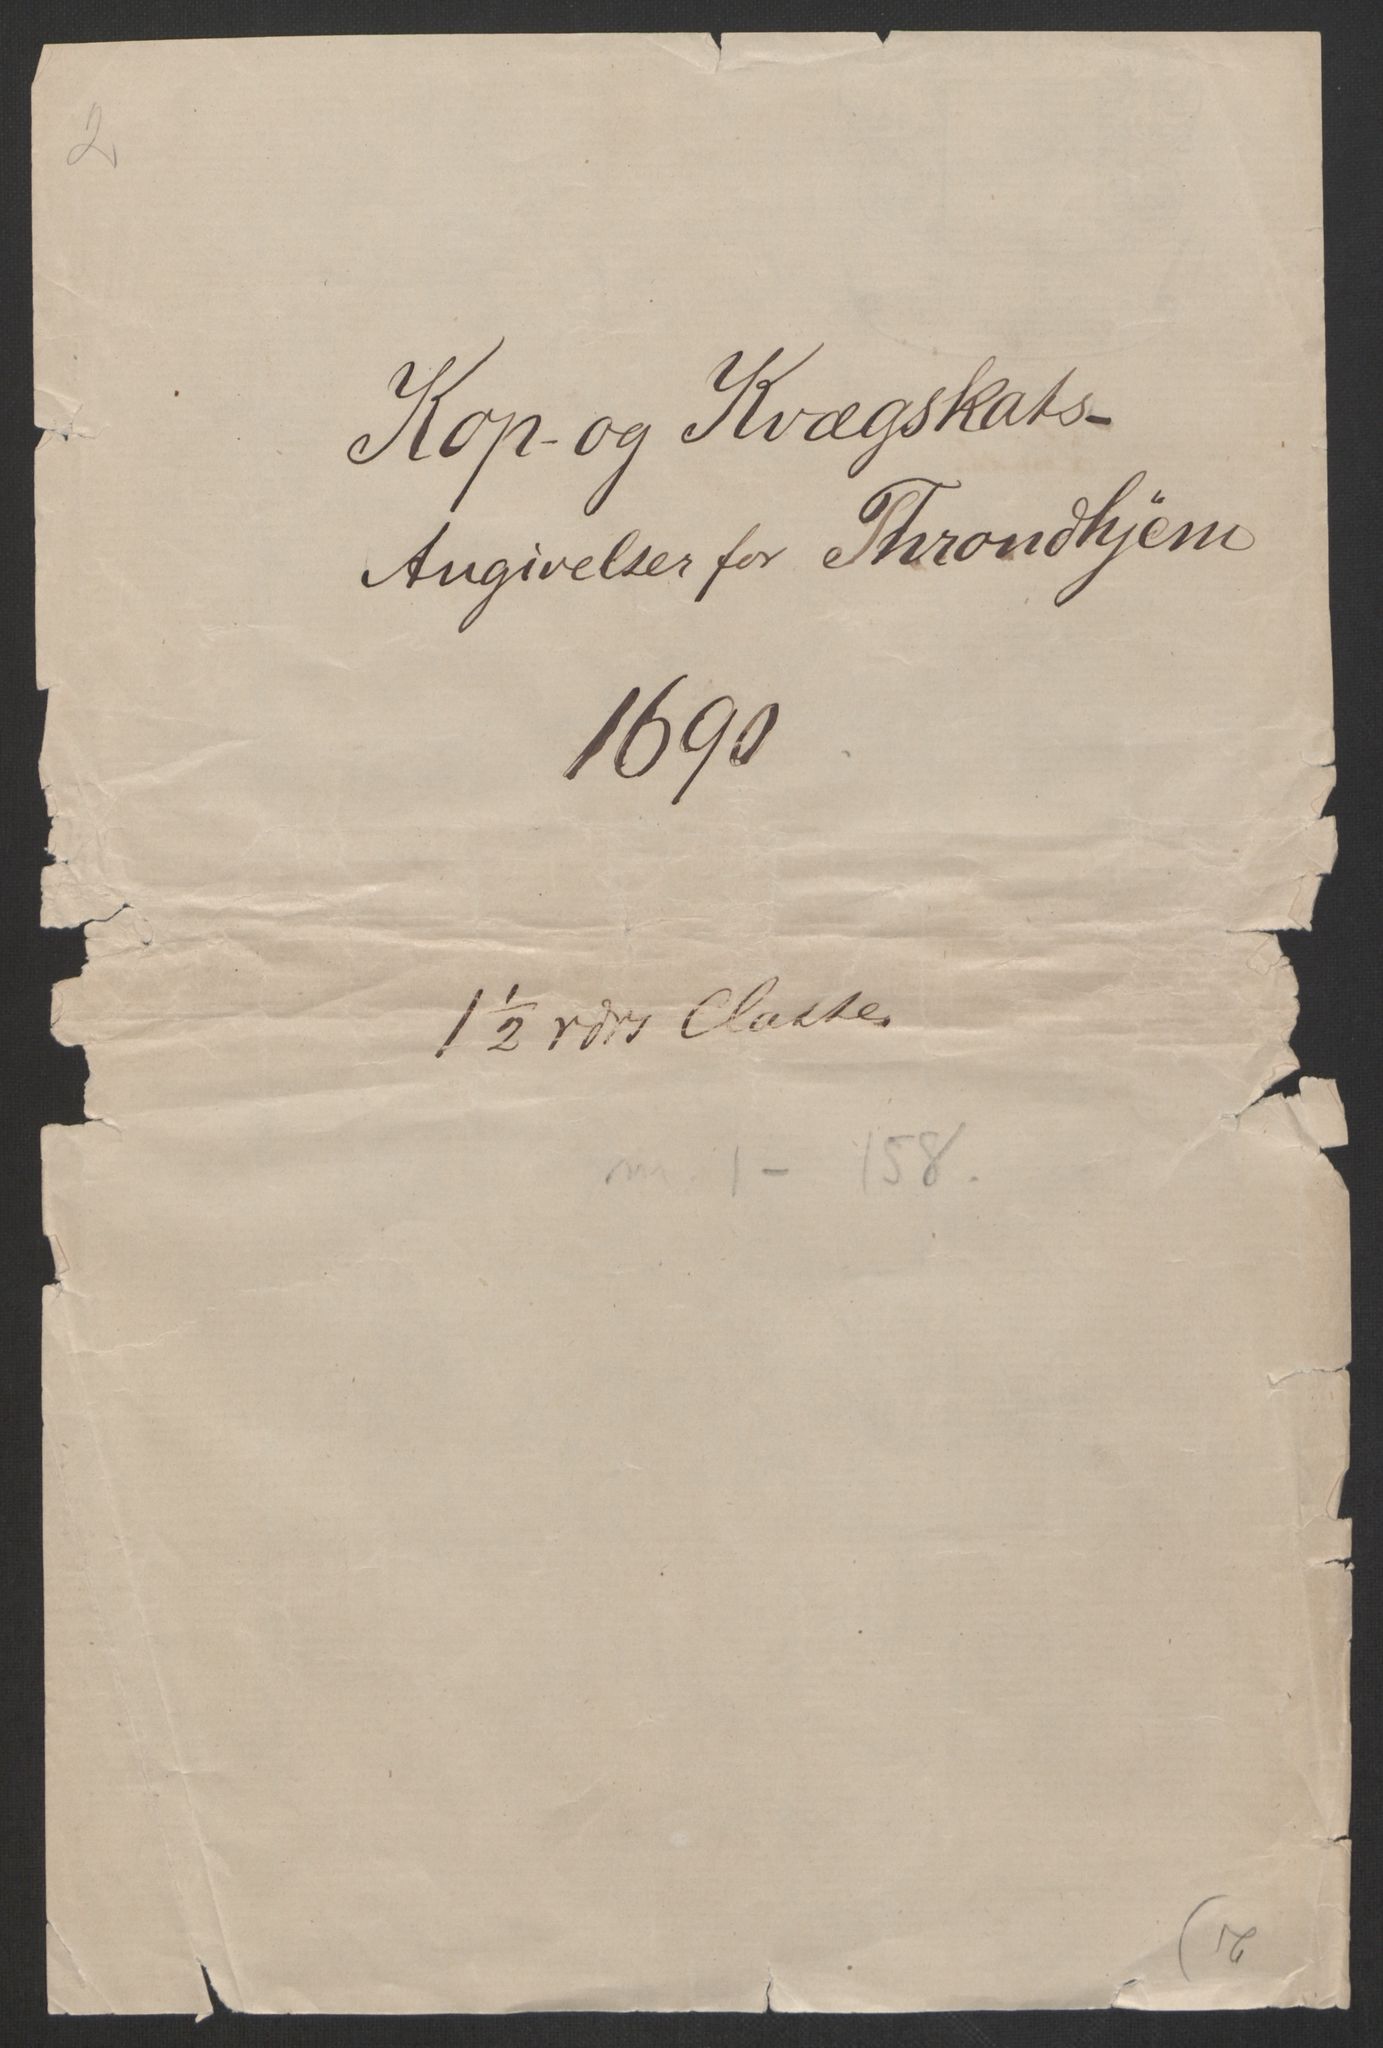 2
Kop- og Kvægskats-
Angivelser for Throndhjëm
1690
1 1/2 rdrs Classe.
1 - 158.